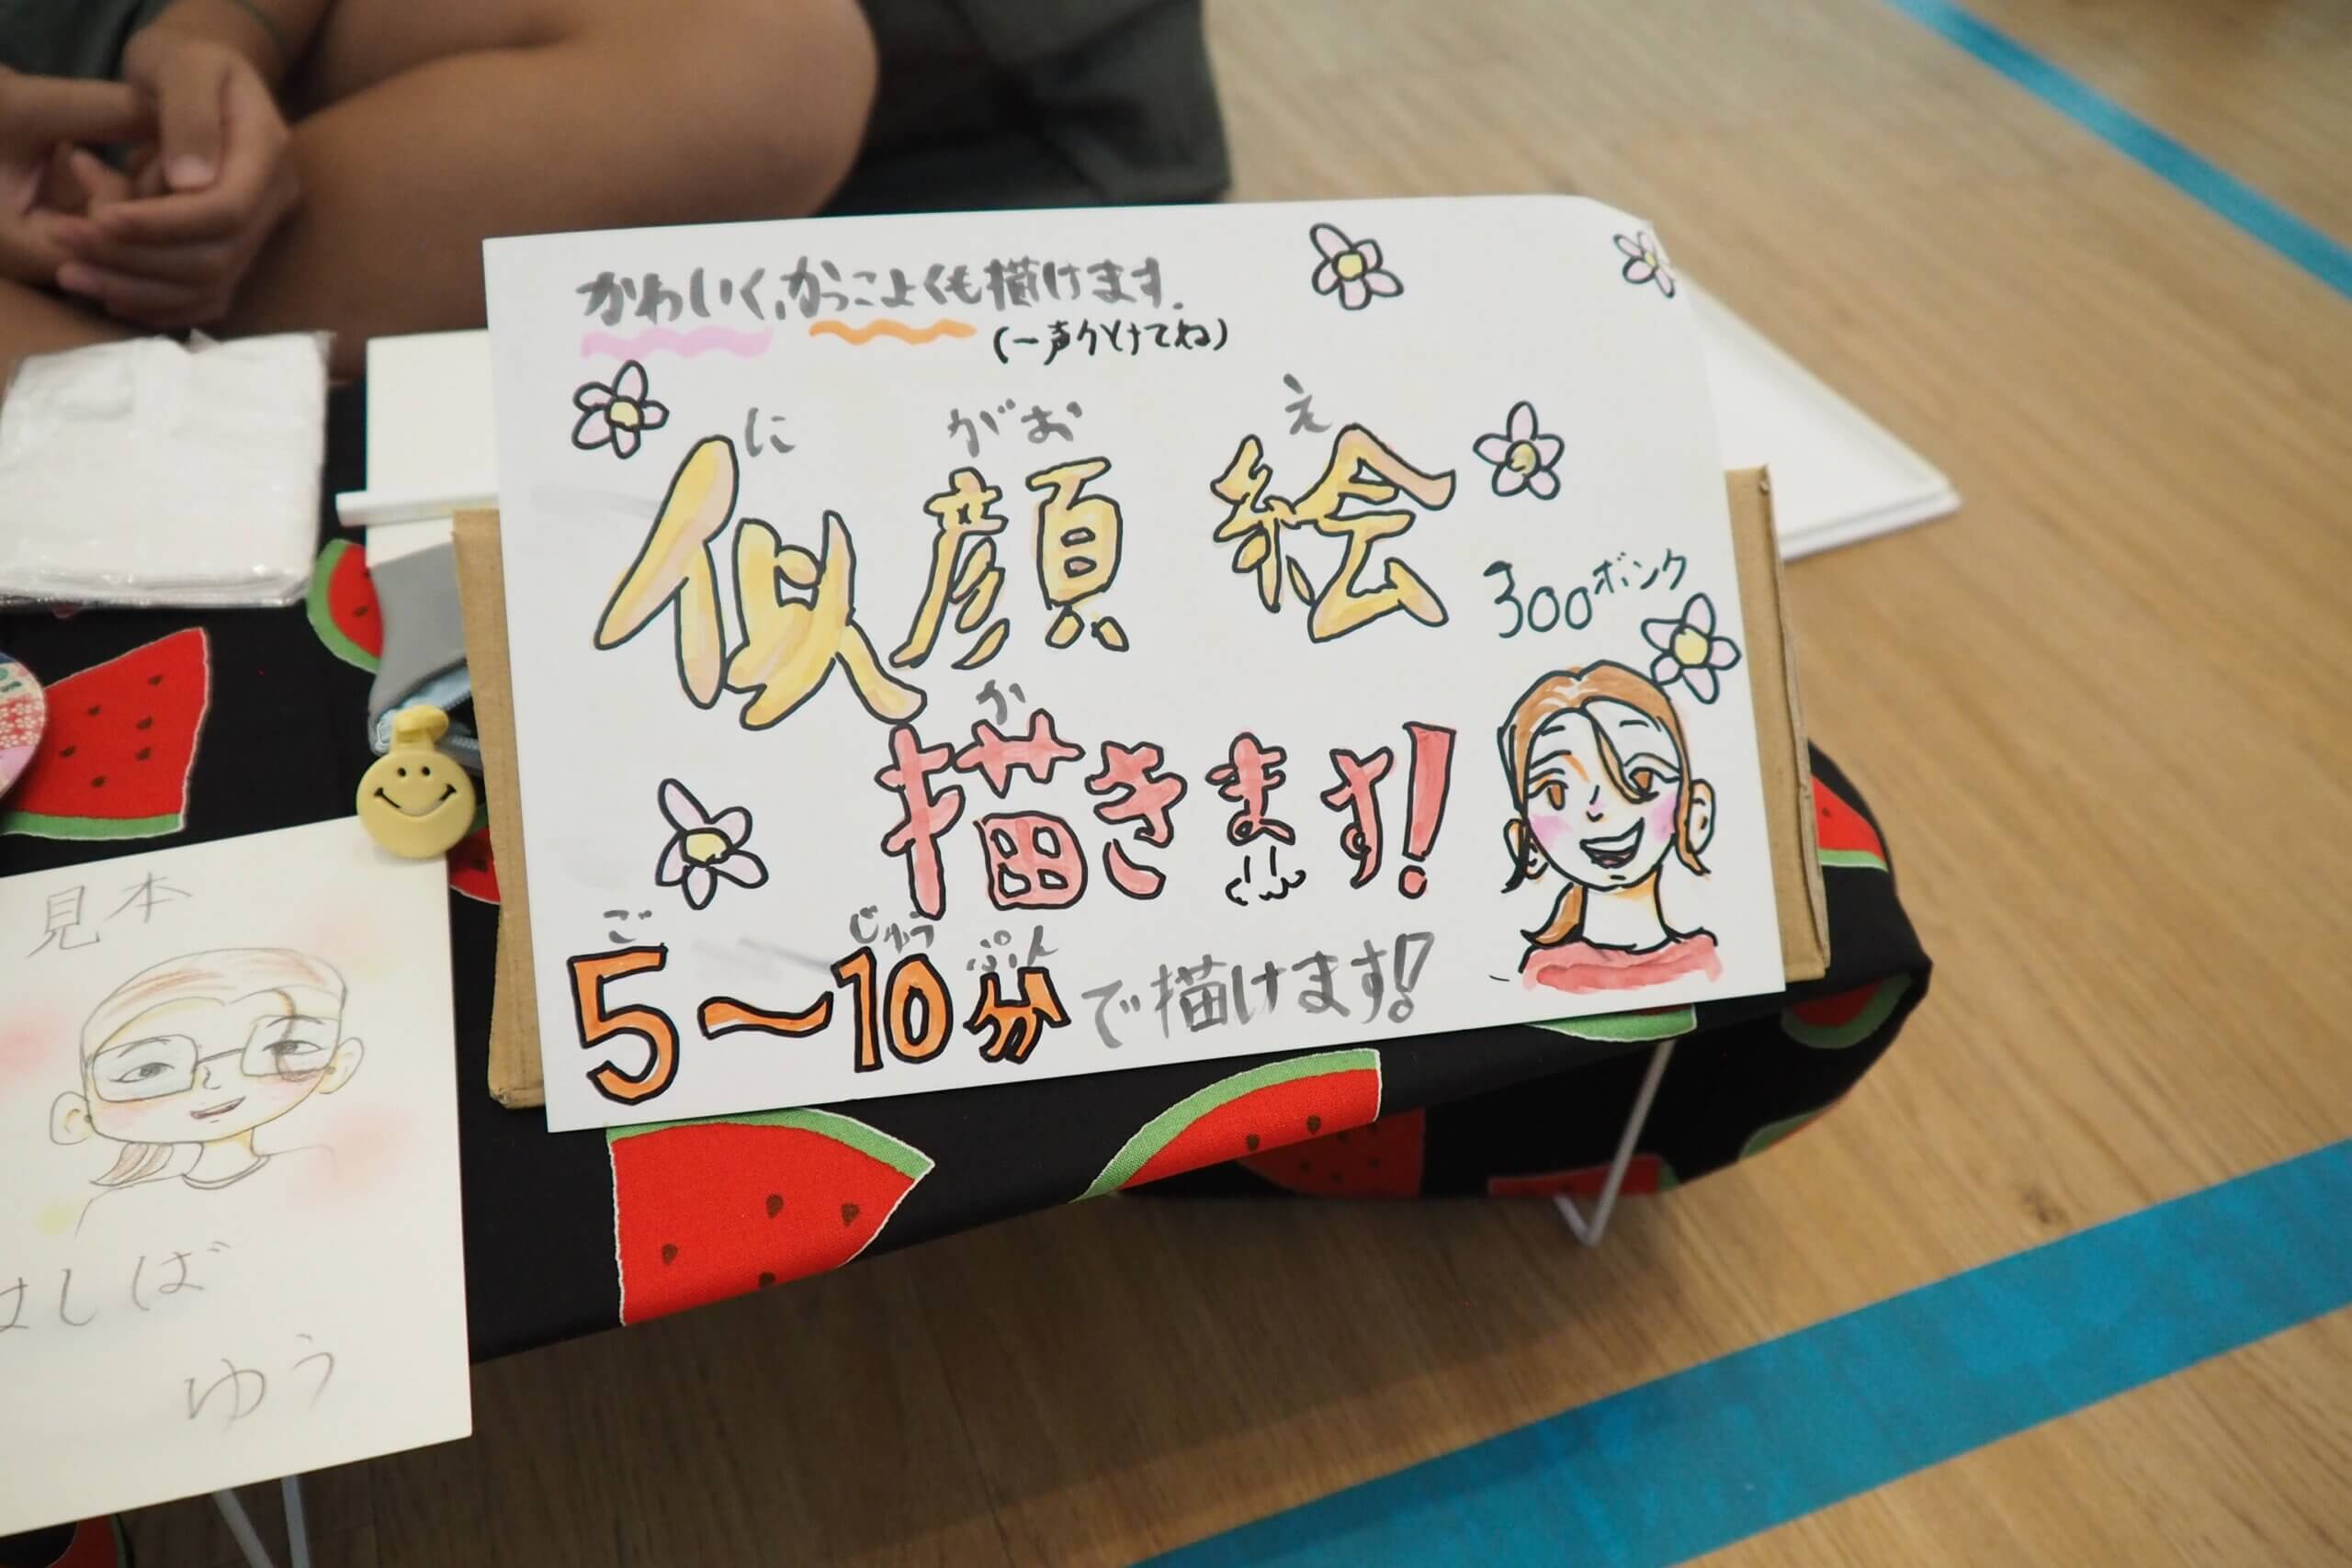 かわいく、かっこよくも描けます.
(一声かけてね)
に がお え
似顔絵
300ボンク
か
描きます!
ご じゅう ぷん
5〜10分で描けます!!
見本
はしば
ゆう